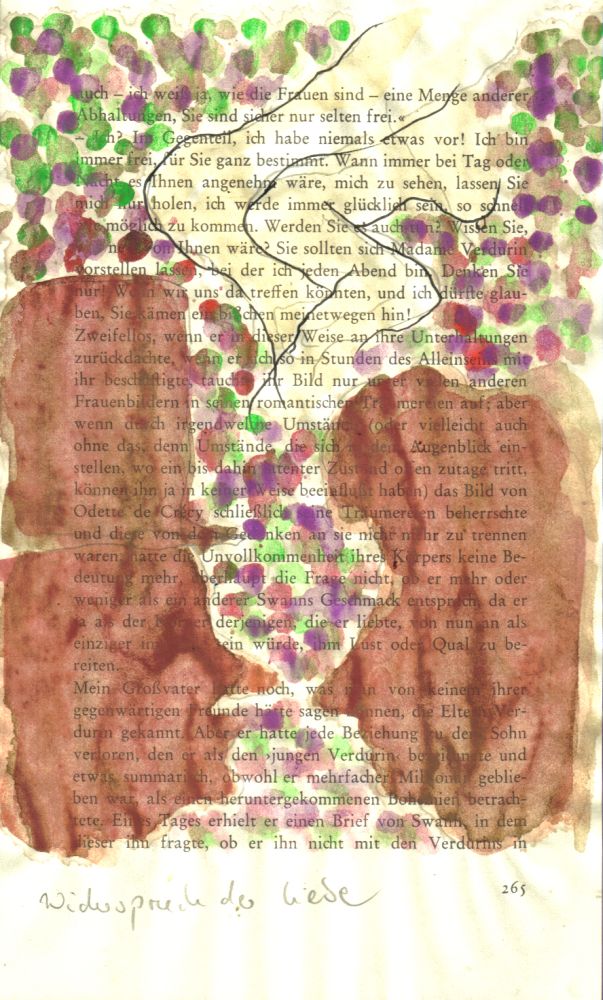 auch – ich weiß ja, wie die Frauen sind – eine Menge anderer
Abhaltungen, Sie sind sicher nur selten frei.«
– Ich? Im Gegenteil, ich habe niemals etwas vor! Ich bin
immer frei, für Sie ganz bestimmt. Wann immer bei Tag oder
Nacht es Ihnen angenehm wäre, mich zu sehen, lassen Sie
mich nur holen, ich werde immer glücklich sein, so schnell
wie möglich zu kommen. Werden Sie es auch tun? Wissen Sie,
was nett von Ihnen wäre? Sie sollten sich Madame Verdurin
vorstellen lassen, bei der ich jeden Abend bin. Denken Sie
nur! Wenn wir uns da treffen könnten, und ich dürfte glau-
ben, Sie kämen ein bischen meinetwegen hin!
Zweifellos, wenn er in dieser Weise an ihre Unterhaltungen
zurückdachte, wenn er sich so in Stunden des Alleinseins mit
ihr beschäftigte, tauchte ihr Bild nur unter vielen anderen
Frauenbildern in seinen romantischen Träumereien auf; aber
wenn durch irgendwelche Umstände (oder vielleicht auch
ohne das, denn Umstände, die sich in dem Augenblick ein-
stellen, wo ein bis dahin latenter Zustand offen zutage tritt,
können ihn ja in keiner Weise beeinflußt haben) das Bild von
Odette de Crécy schließlich seine Träumereien beherrschte
und diese von dem Gedanken an sie nicht mehr zu trennen
waren, hätte die Unvollkommenheit ihres Körpers keine Be-
deutung mehr, überhaupt die Frage nicht, ob er mehr oder
weniger als ein anderer Swanns Geschmack entsprach, da er
ja als der Körper derjenigen, die er liebte, von nun an als
einziger imstande sein würde, ihm Lust oder Qual zu be-
reiten.
Mein Großvater hatte noch, was man von keinem ihrer
gegenwärtigen Freunde hätte sagen können, die Eltern Ver-
durin gekannt. Aber er hatte jede Beziehung zu dem Sohn
verloren, den er als den ›jungen Verdurin‹ bezeichnete und
etwas summarisch, obwohl er mehrfacher Millionär geblie-
ben war, als einen heruntergekommenen Bohemien betrach-
tete. Eines Tages erhielt er einen Brief von Swann, in dem
dieser ihn fragte, ob er ihn nicht mit den Verdurins in
265
Widerspruch der Liebe